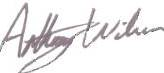 Anthony Wilson